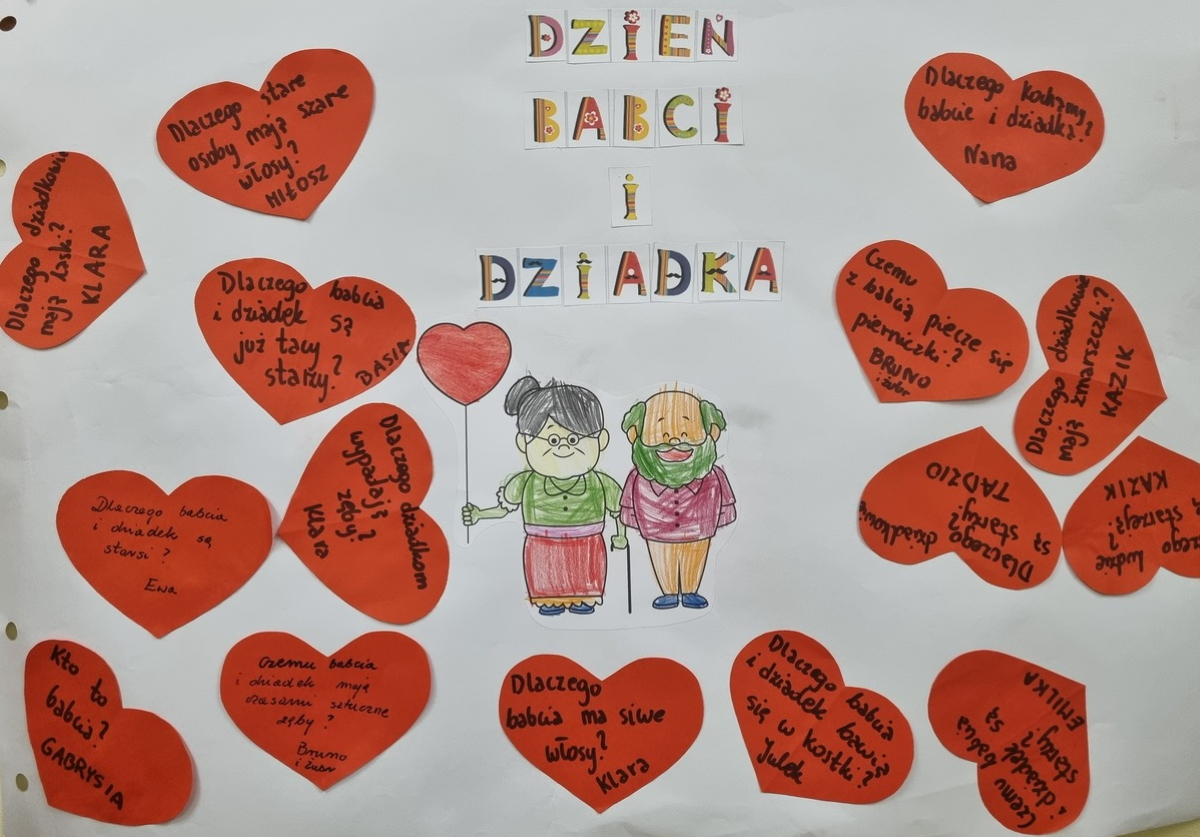 DZIEŃ
BABCI
i
DZIADKA
Dlaczego stare
osoby mają szare
włosy?
MIŁOSZ
Dlaczego dziadkowie
mają laski?
KLARA
Dlaczego babcia
i dziadek są
już tacy
starzy?
BASIA
Dlaczego dziadkom
wypadają?
zęby?
Klara
Dlaczego babcia
i dziadek są
starsi?
Ewa
Kto to
babcia?
GABRYSIA
Czemu babcia
i dziadek mają
czasami sztuczne
zęby?
Bruno
i żubr
Dlaczego
babcia ma siwe
włosy?
Klara
Dlaczego babcia
i dziadek bawią
się w kostki?
Julek
Czemu babcia
i dziadek są
starzy?
EMILKA
Dlaczego kochamy
babcie i dziadka?
Nana
Czemu
z babcią piecze się
pierniczki?
BRUNO
i żubr
Dlaczego dziadkowie
mają zmarszczki?
KAZIK
Dlaczego dziadkowie
są starzy?
TADZIO
ludzie
są starzej?
KAZIK